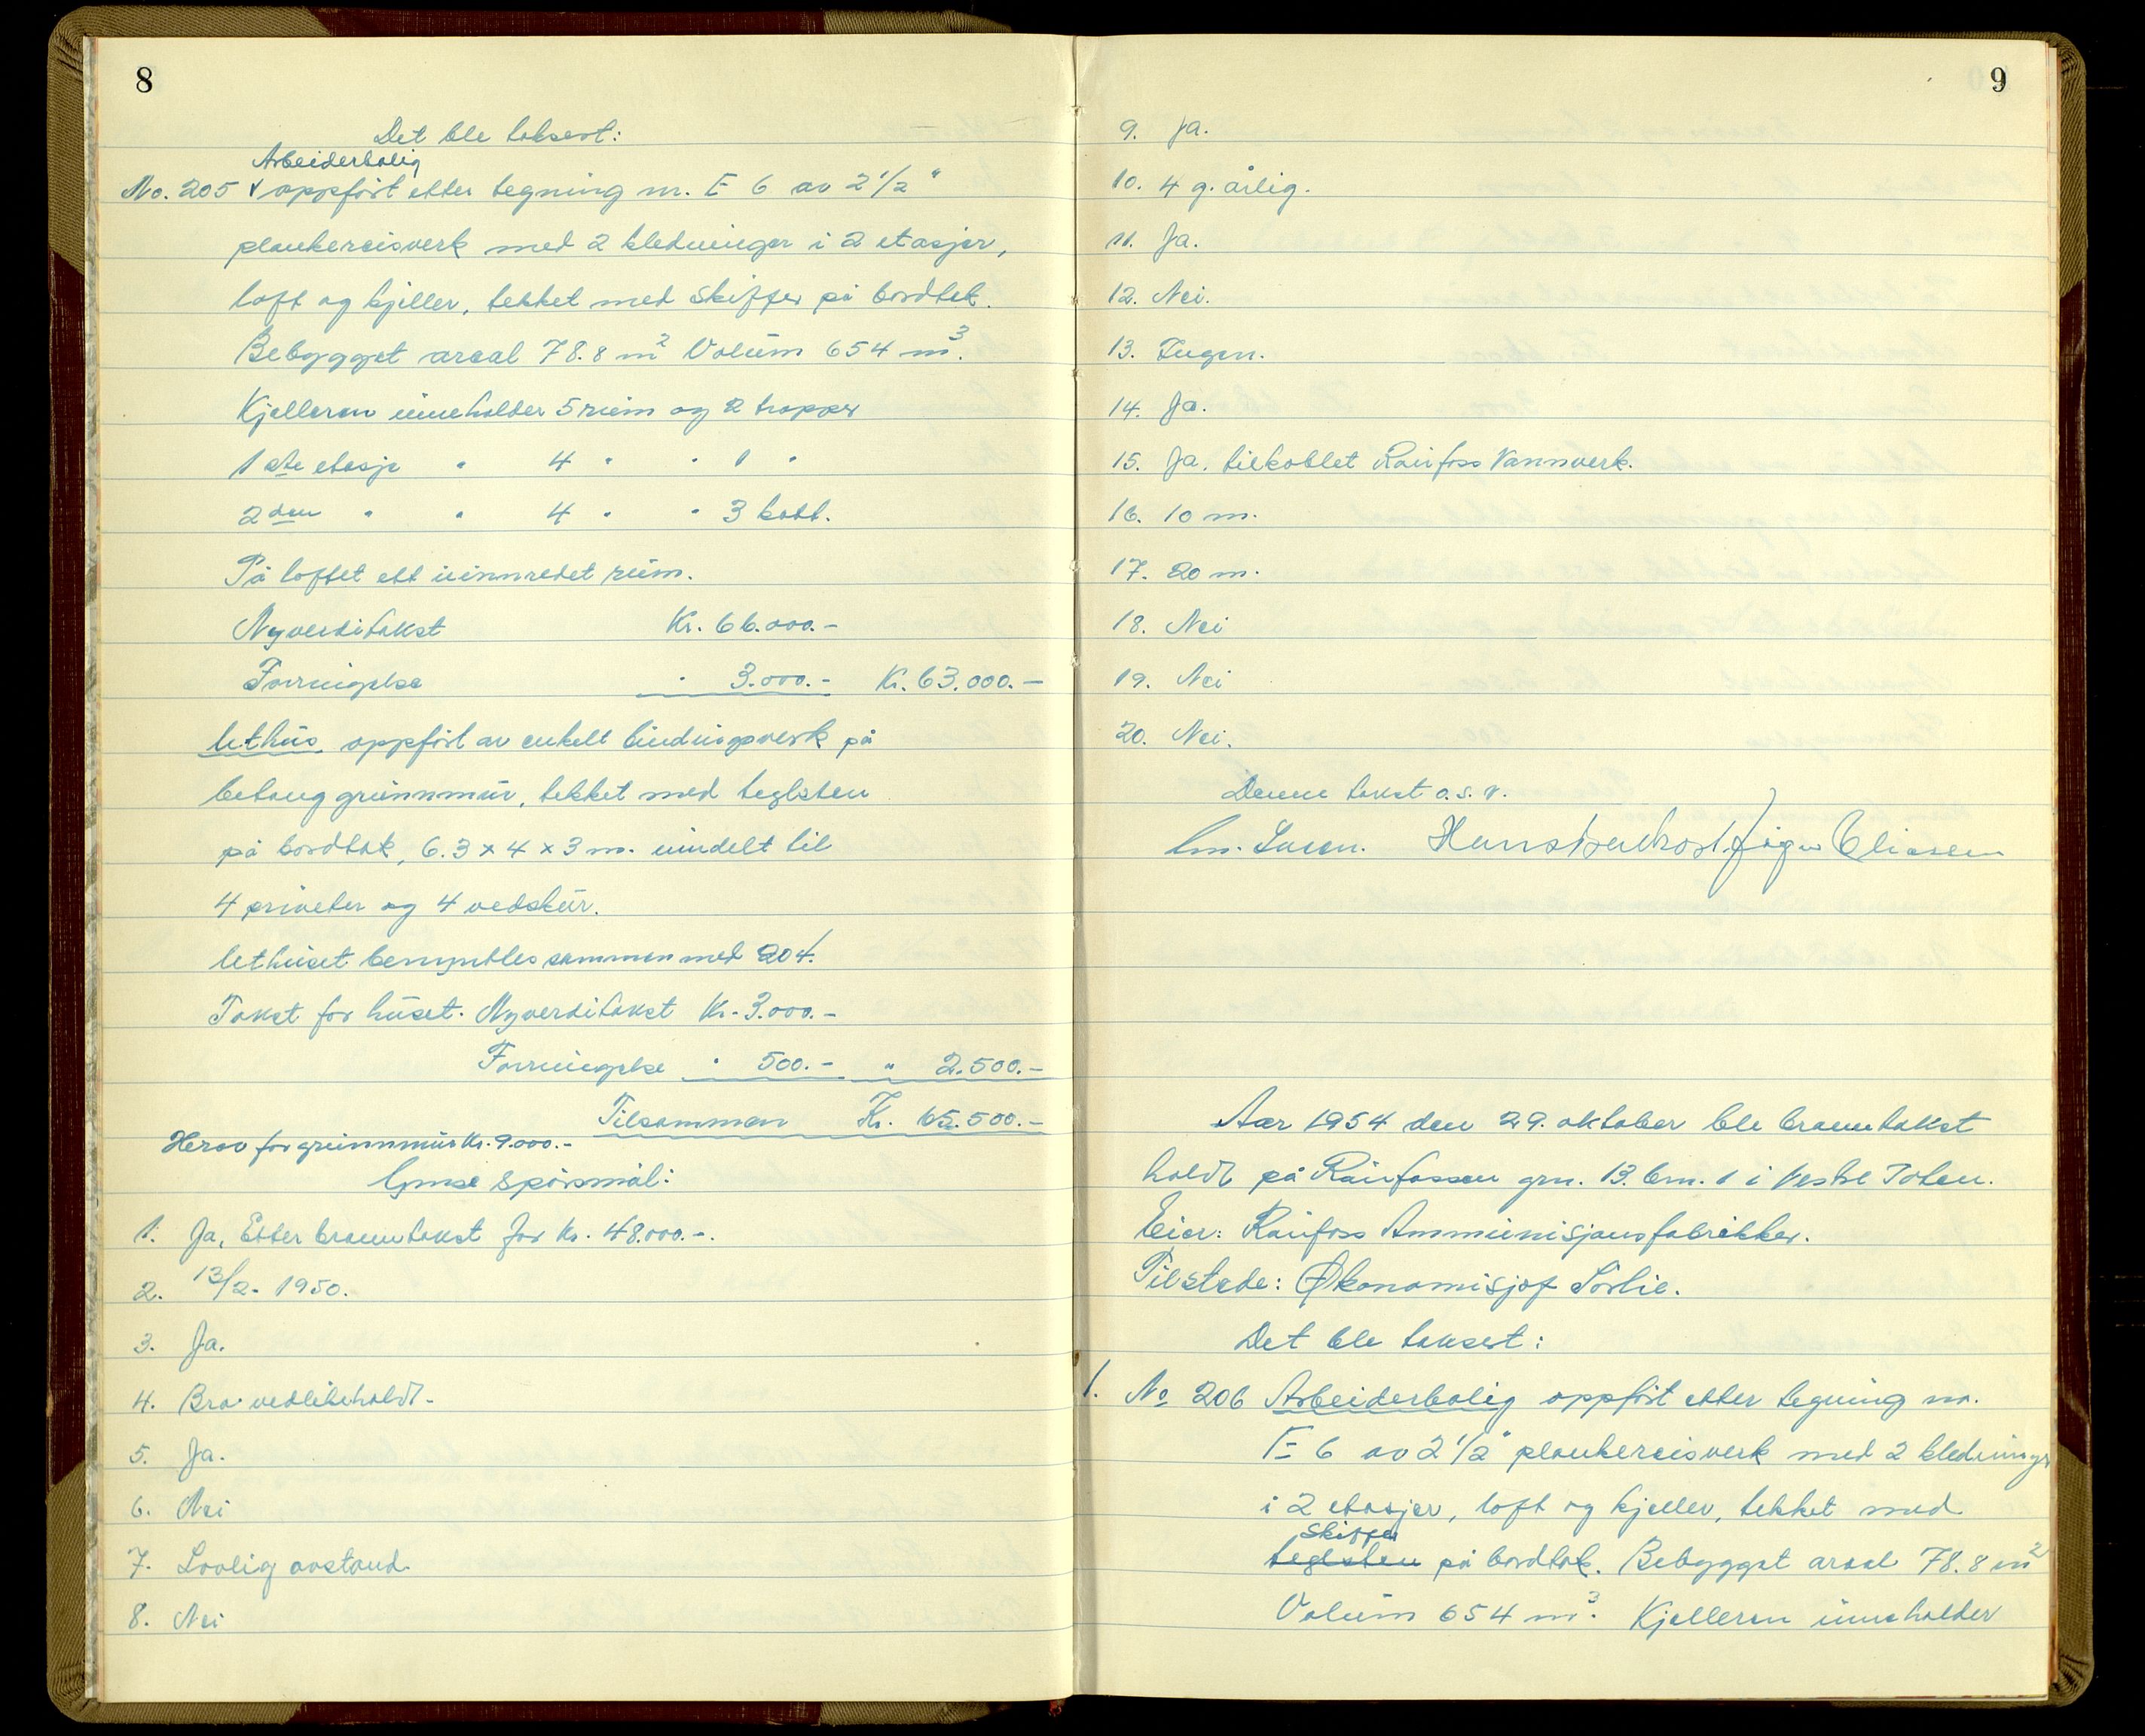 8
Det ble taksert:
Arbeiderbolig
No. 205 v oppført etter tegning nr. E 6 av 2 1/2 "
plankereisverk med 2 kledninger i 2 etasjer,
loft og kjeller, tekket med skiffer på bordtak.
Bebygget areal 78.8 m² Volum 654 m³.
Kjelleren inneholder 5 rum og 2 trapper
1ste etasje " 4 " " 1 "
2den " " 4 " " 3 kott.
På loftet ett uinnredet rum.
Nyverditakst Kr. 66.000.-
Forringelse " 3.000.- Kr. 63.000.-
Uthus oppført av enkelt bindingsverk på
betong grunnmur, tekket med teglsten
på bordtak, 6.3 x 4 x 3 m. inndelt til
4 priveter og 4 vedskur.
Uthuset benyttes sammen med 204.
Takst for huset. Nyverditakst Kr. 3.000.-
Forringelse " 500.- " 2.500.-
Tilsammen Kr. 65.500.-
Herav for grunnmur Kr. 9.000.-
Ymse spørsmål:
1. Ja, Etter branntakst for Kr. 48.000.-.
2. 13/2- 1950.
3. Ja.
4. Bra vedlikeholdt.
5. Ja.
6. Nei
7. Lovlig avstand.
8. Nei
9
9. Ja.
10. 4 g. årlig.
11. Ja.
12. Nei.
13. Ingen.
14. Ja.
15. Ja, tilkoblet Raufoss Vannverk.
16. 10 m.
17. 20 m.
18. Nei
19. Nei
20. Nei.
Denne takst o.s.v.
Eliassen
Aar 1954 den 29. oktober ble branntakst
holdt på Raufossen grn. 13. brn. 1 i Vestre Toten.
Eier: Raufoss Ammunisjonsfabrikker.
Tilstede: Økonomisjef Sørlie.
Det ble taksert:
1. No 206 Arbeiderbolig oppført etter tegning nr.
E 6 av 2 1/2" plankereisverk med 2 kledninger
i 2 etasjer, loft og kjeller, tekket med
Skiffer
teglsten på bordtak. Bebygget areal 78.8 m²
Volum 654 m³. Kjelleren inneholder